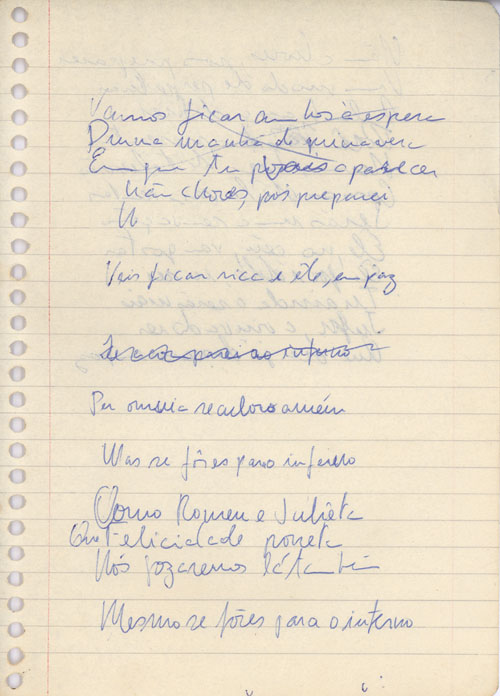 Vamos ficar ambos à espera
Duma manhã de primavera
Em que tu possas aparecer
Não chores, pois preparei
U
Vais ficar rica e êle, em paz
Per omnia secloro amén
Mas se fôres para o inferno
Como Romeu e Julièta
felicidade
Nós gozaremos lá também
Mesmo se fôres para o inferno